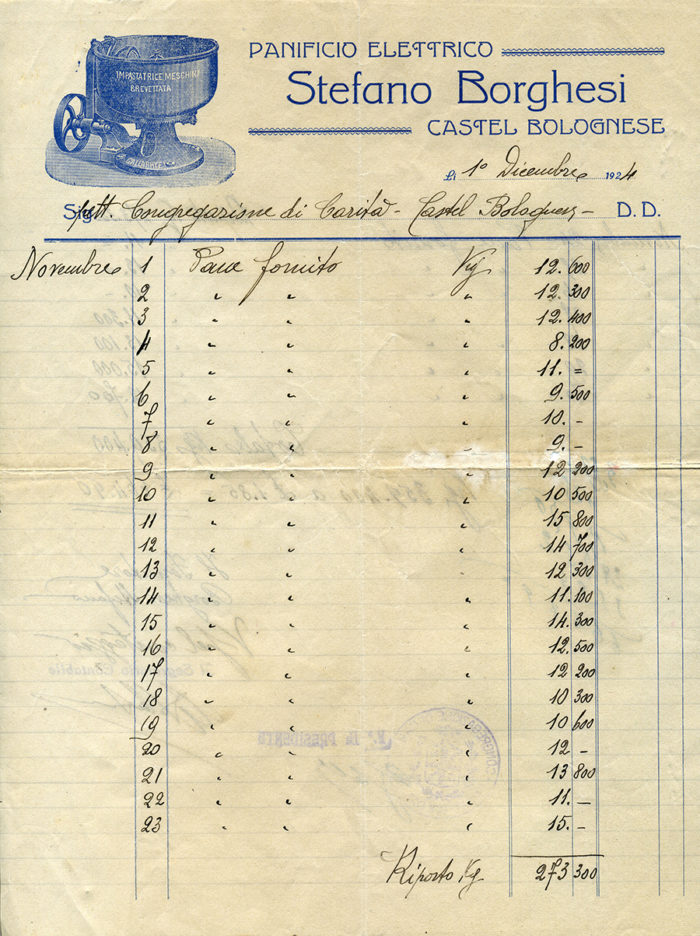 IMPASTATRICE MESCHINI
BREVETTATA
PANIFICIO ELETTRICO
Stefano Borghesi
CASTEL BOLOGNESE
li 1° Dicembre 1924
Sig. Congregazione di Carità - Castel Bolognese - D. D.
Novembre 1 Pane fornito Kg 12.600
2 " " " 12.300
3 " " " 12.400
4 " " " 8.200
5 " " " 11. =
6 " " " 9.500
7 " " " 10. -
8 " " " 9. -
9 " " " 12 200
10 " " " 10 500
11 " " " 15 800
12 " " " 14 700
13 " " " 12 300
14 " " " 11.100
15 " " " 14.300
16 " " " 12.500
17 " " " 12 200
18 " " " 10 300
19 " " " 10 600
20 " " " 12 -
21 " " " 13 800
22 " " " 11. -
23 " " " 15. -
Riporto Kg. 273 300